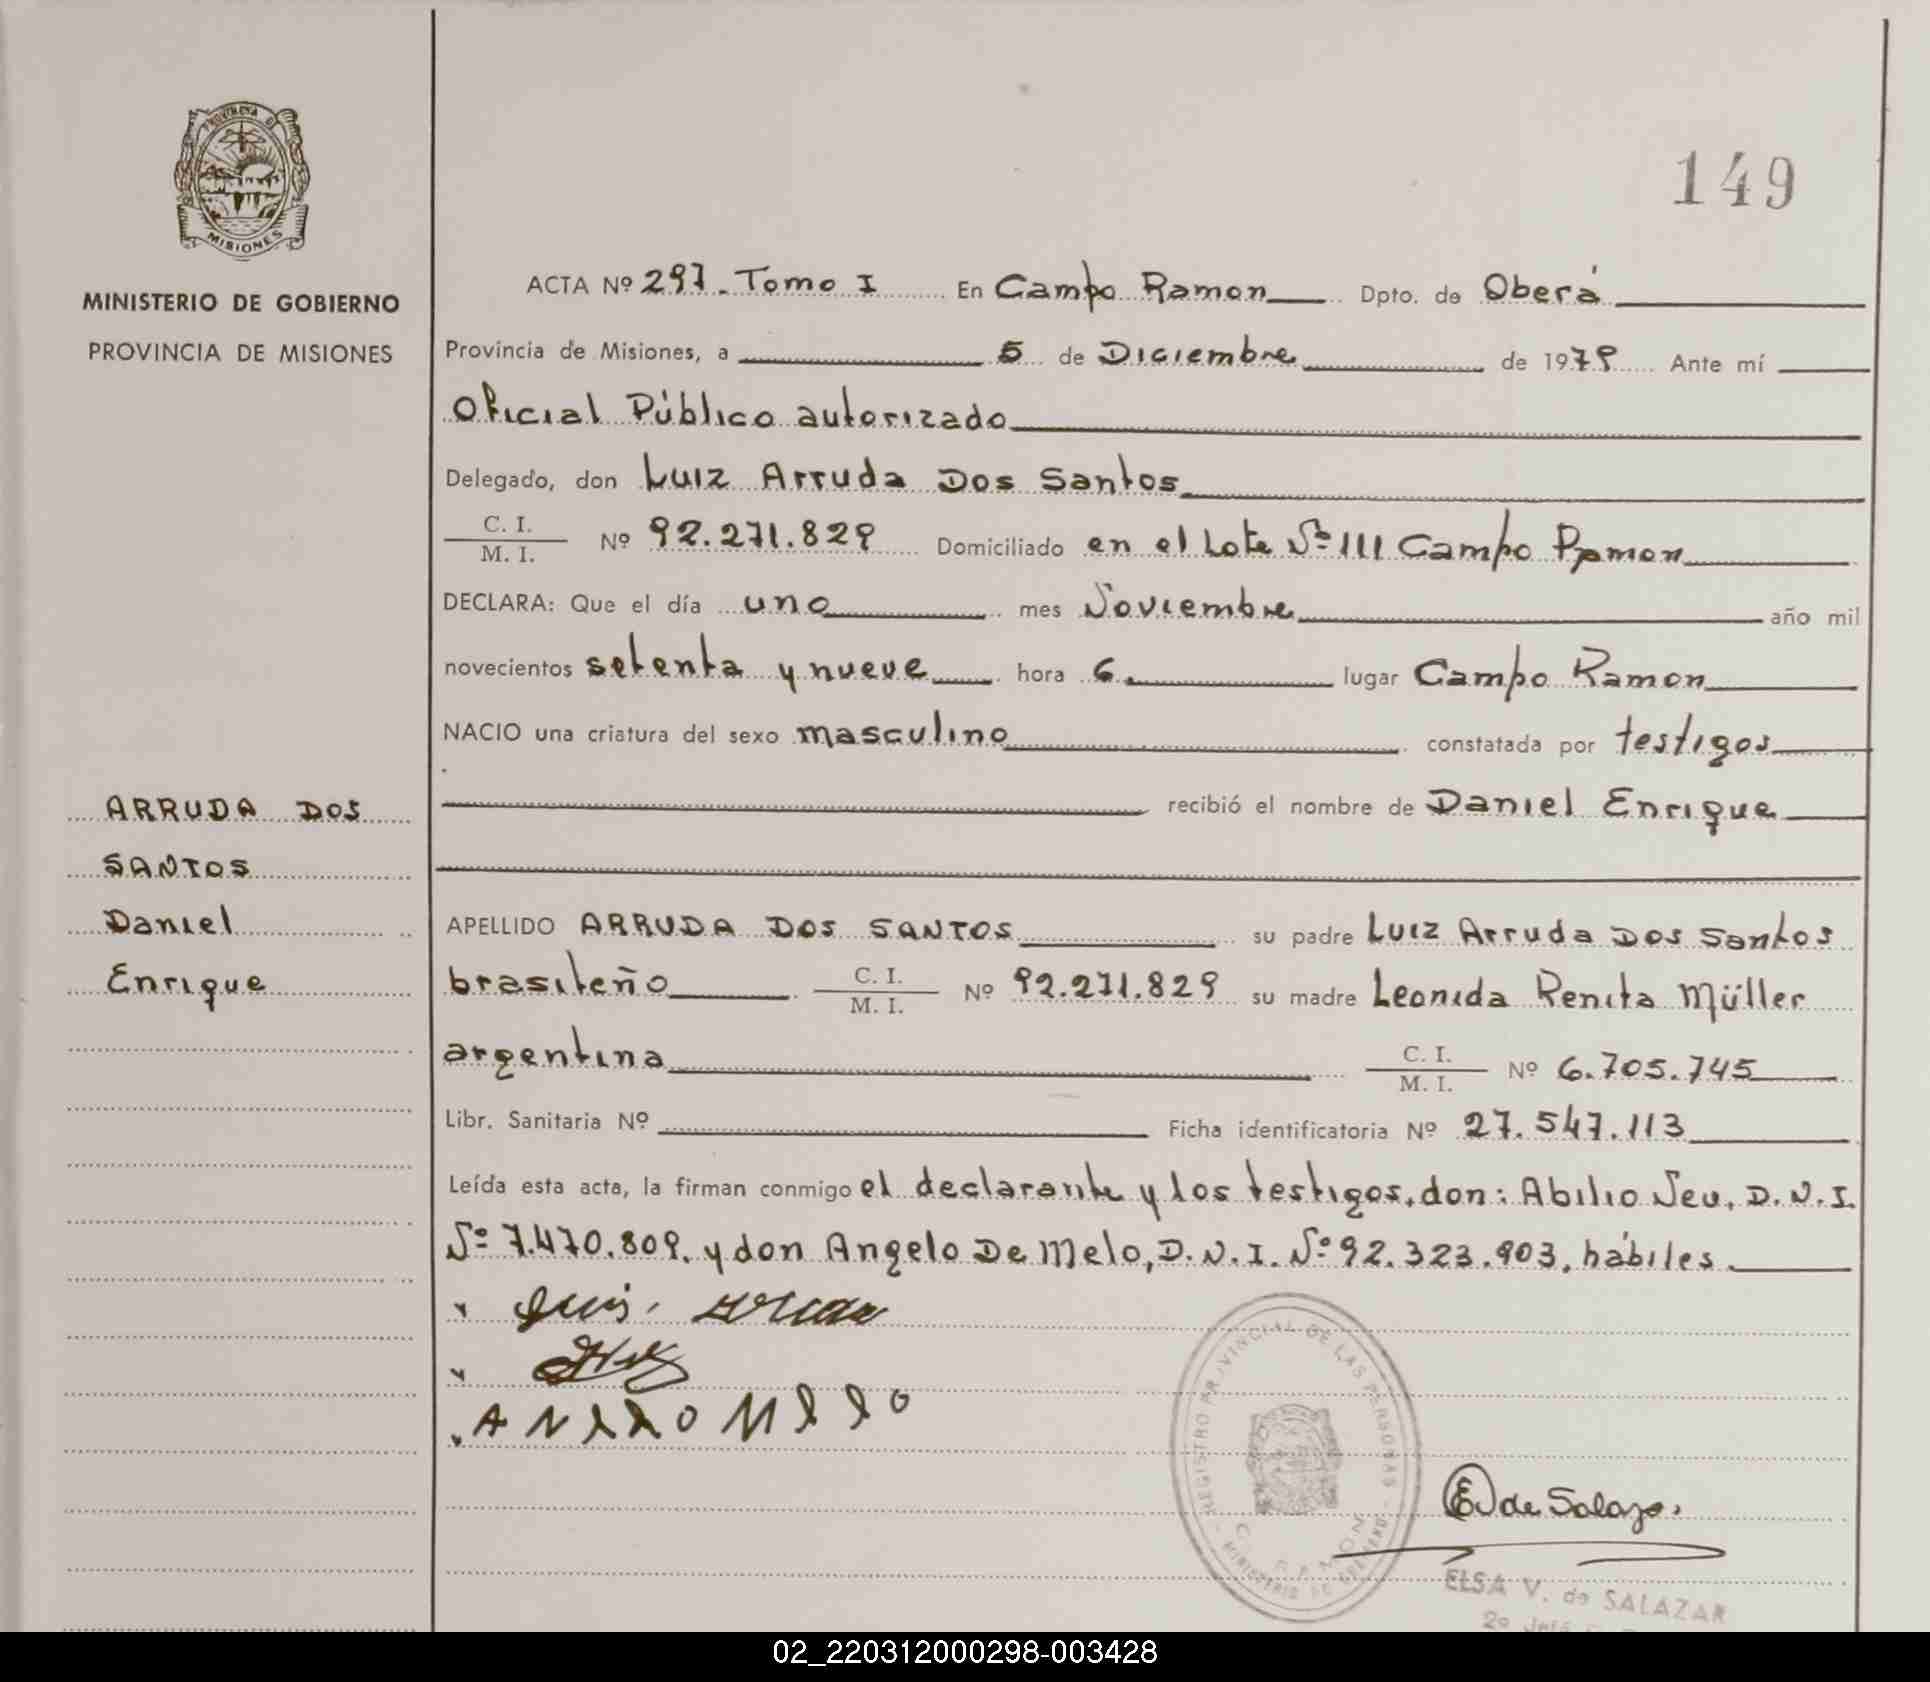 PROVINCIA DE
MISIONES
MINISTERIO DE GOBIERNO
PROVINCIA DE MISIONES
149
ACTA Nº 297. Tomo I En Campo Ramon Dpto. de Oberá
Provincia de Misiones, a 5 de Diciembre de 1979 Ante mí
Oficial Público autorizado
Delegado, don Luiz Arruda Dos Santos
C. I.
M. I. Nº 92.271.829 Domiciliado en el Lote Nº 111 Campo Ramon
DECLARA: Que el día uno mes Noviembre año mil
novecientos setenta y nueve hora 6. lugar Campo Ramon
NACIO una criatura del sexo masculino constatada por testigos
recibió el nombre de Daniel Enrique
ARRUDA DOS
SANTOS
Daniel
Enrique
APELLIDO ARRUDA DOS SANTOS su padre Luiz Arruda Dos Santos
brasileño C. I.
M. I. Nº 92.271.829 su madre Leonida Renita Müller
argentina C. I.
M. I. Nº 6.705.745
Libr. Sanitaria Nº Ficha identificatoria Nº 27.547.113
Leída esta acta, la firman conmigo el declarante y los testigos, don: Abilio Neu, D.N.I.
Nº 7.470.809, y don Angelo De Melo, D.N.I. Nº 92.323.903, hábiles.
REGISTRO PROVINCIAL DE LAS PERSONAS
MINISTERIO DE GOBIERNO
E V de Salazar
ELSA V. de SALAZAR
02_220312000298-003428